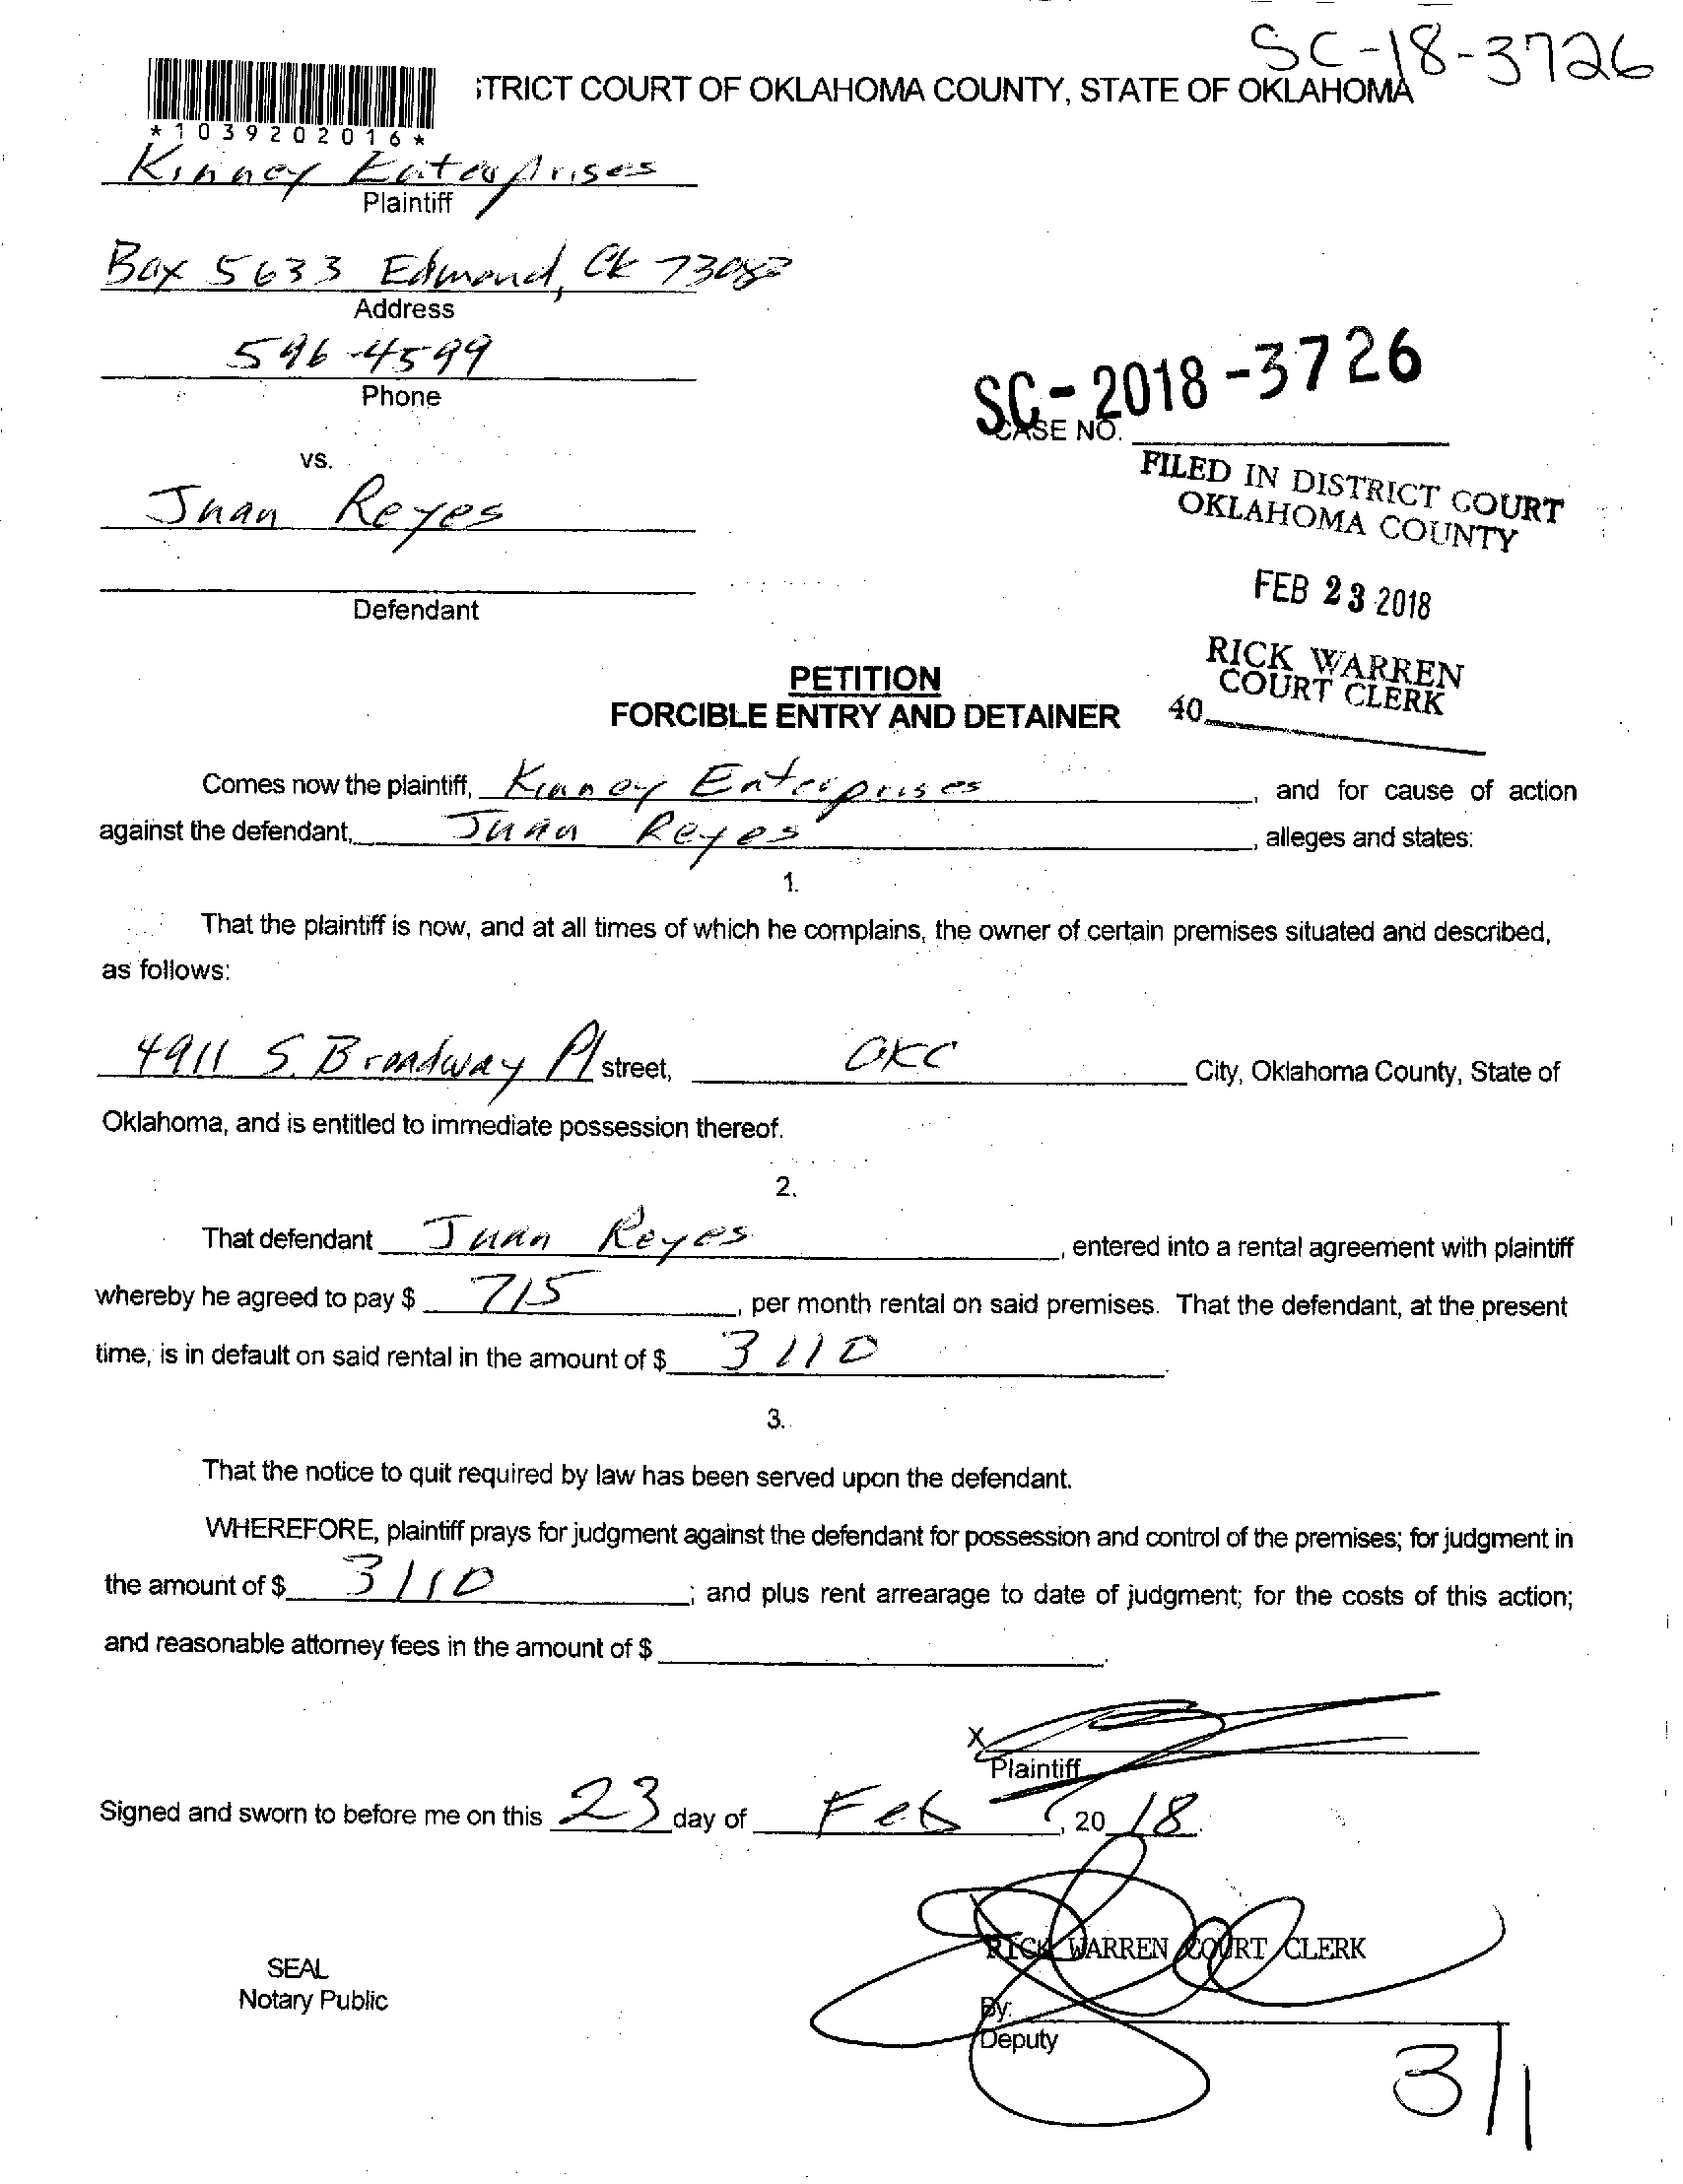 SC-18-3726
TRICT COURT OF OKLAHOMA COUNTY, STATE OF OKLAHOMA
*1039202016*
Kinney Enterprises
Plaintiff
Box 5633 Edmond, Ok 73083
Address
596-4599
Phone
SC-2018-3726
CASE NO.
vs.
FILED IN DISTRICT COURT
OKLAHOMA COUNTY
Juan Reyes
FEB 23 2018
Defendant
RICK WARREN
COURT CLERK
40
PETITION
FORCIBLE ENTRY AND DETAINER
Comes now the plaintiff, Kinney Enterprises, and for cause of action
against the defendant, Juan Reyes, alleges and states:
1.
That the plaintiff is now, and at all times of which he complains, the owner of certain premises situated and described,
as follows:
4911 S. Broadway Pl street, OKC City, Oklahoma County, State of
Oklahoma, and is entitled to immediate possession thereof.
2.
That defendant Juan Reyes, entered into a rental agreement with plaintiff
whereby he agreed to pay $ 715, per month rental on said premises. That the defendant, at the present
time, is in default on said rental in the amount of $ 3110.
3.
That the notice to quit required by law has been served upon the defendant.
WHEREFORE, plaintiff prays for judgment against the defendant for possession and control of the premises; for judgment in
the amount of $ 3110; and plus rent arrearage to date of judgment; for the costs of this action;
and reasonable attorney fees in the amount of $ .
X
Plaintiff
Signed and sworn to before me on this 23 day of Feb, 20 18.
RICK WARREN COURT CLERK
SEAL
Notary Public
By:
Deputy
3/1